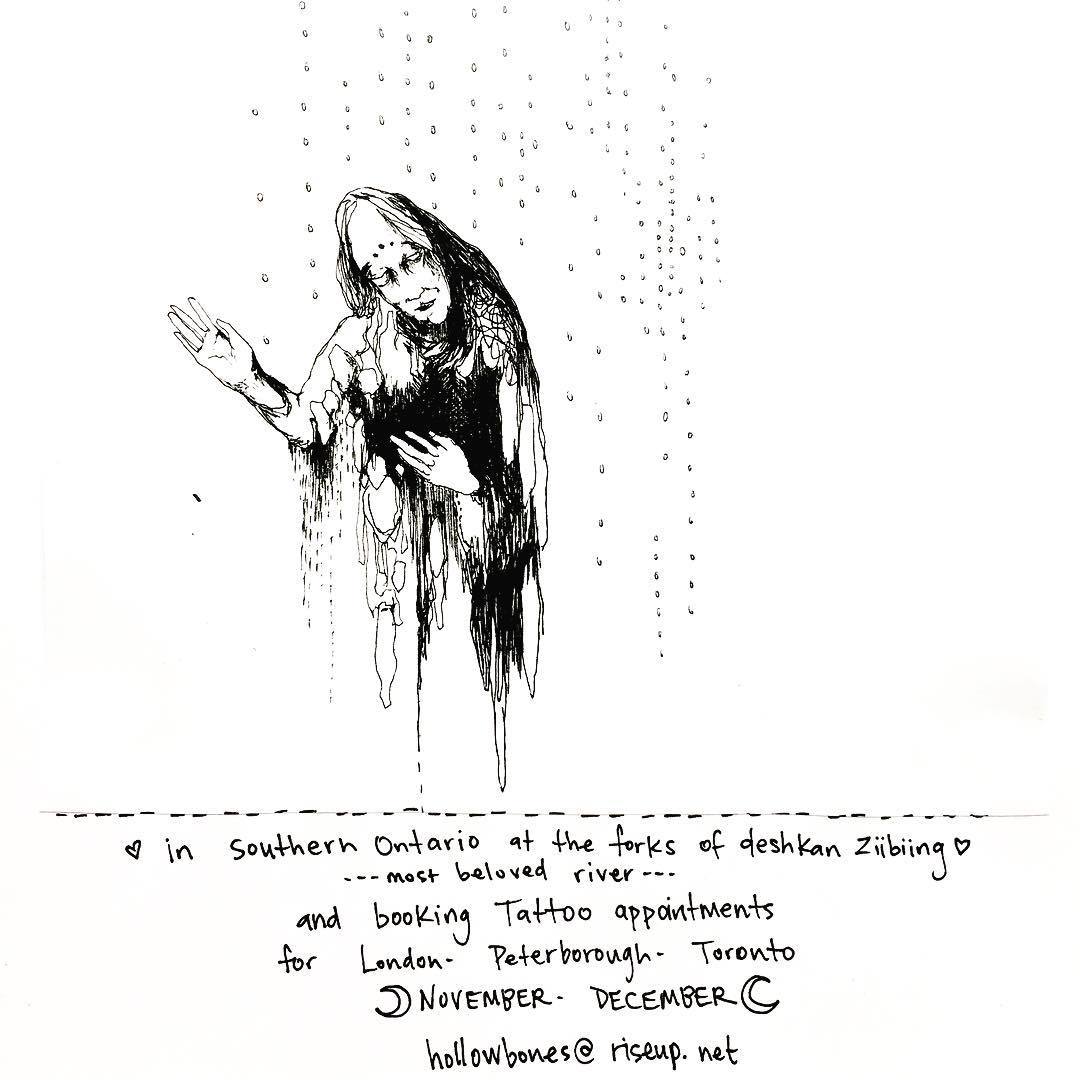 ♡ in southern Ontario at the forks of deshkan Ziibiing ♡
---most beloved river---
and booking Tattoo appointments
for London- Peterborough- Toronto
☽ NOVEMBER- DECEMBER ☾
hollowbones@riseup.net